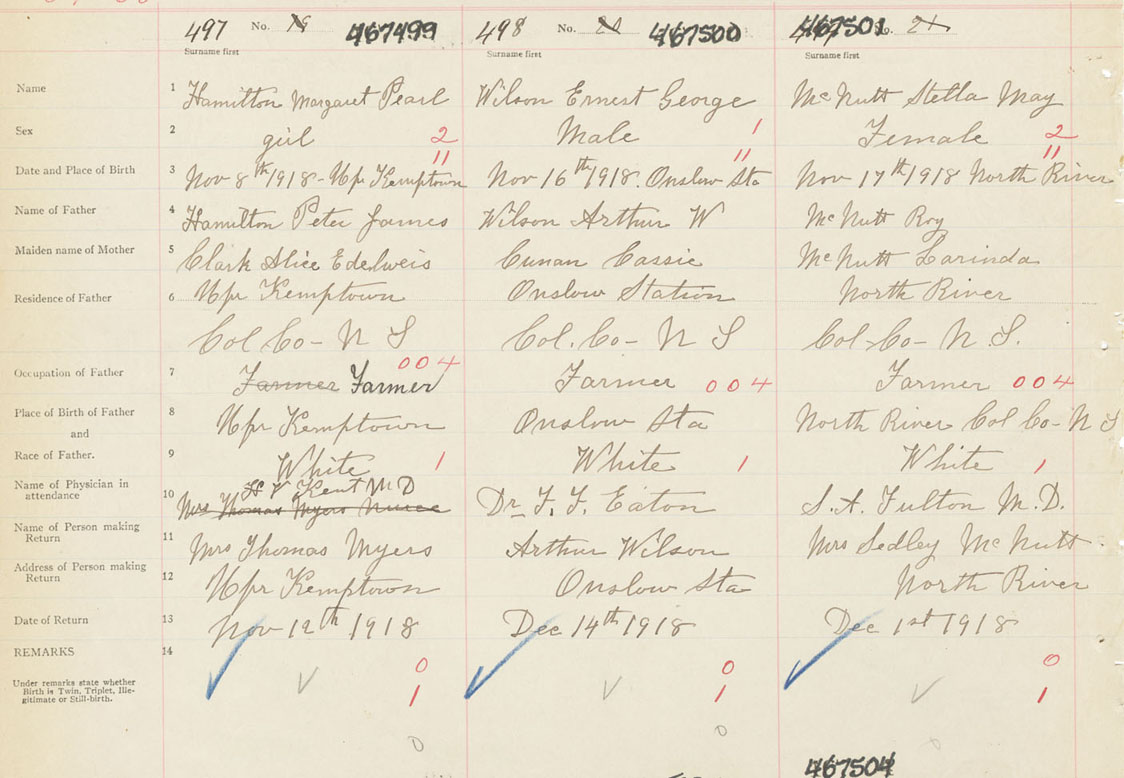 497 No. 19 467499 498 No. 20 467500 467501 21
Surname first Surname first Surname first
Name 1 Hamilton Margaret Pearl Wilson Ernest George McNutt Stella May
Sex 2 girl 2 Male 1 Female 2
11 11 11
Date and Place of Birth 3 Nov 8th 1918 - Upr Kemptown Nov 16th 1918. Onslow Sta Nov 17th 1918 North River
Name of Father 4 Hamilton Peter James Wilson Arthur W McNutt Roy
Maiden name of Mother 5 Clark Alice Edelweis Cunan Cassie McNutt Larinda
Residence of Father 6 Upr Kemptown Onslow Station North River
Col Co - N S Col. Co - N S Col - Co - N. S.
004
Occupation of Father 7 Farmer Farmer Farmer 004 Farmer 004
Place of Birth of Father 8 Upr Kemptown Onslow Sta North River Col Co - N S
and
Race of Father. 9 White 1 White 1 White 1
H V Kent M D
Name of Physician in attendance 10 Mrs Thomas Myers Nurse Dr F. F. Eaton S. A. Fulton M. D.
Name of Person making Return 11 Mrs Thomas Myers Arthur Wilson Mrs Sedley McNutt
Address of Person making Return 12 Upr Kemptown Onslow Sta North River
Date of Return 13 Nov 12th 1918 Dec 14th 1918 Dec 1st 1918
REMARKS 14
0 0 0
Under remarks state whether
Birth is Twin, Triplet, Ille-
gitimate or Still-birth.
1 1 1
0 0
467504